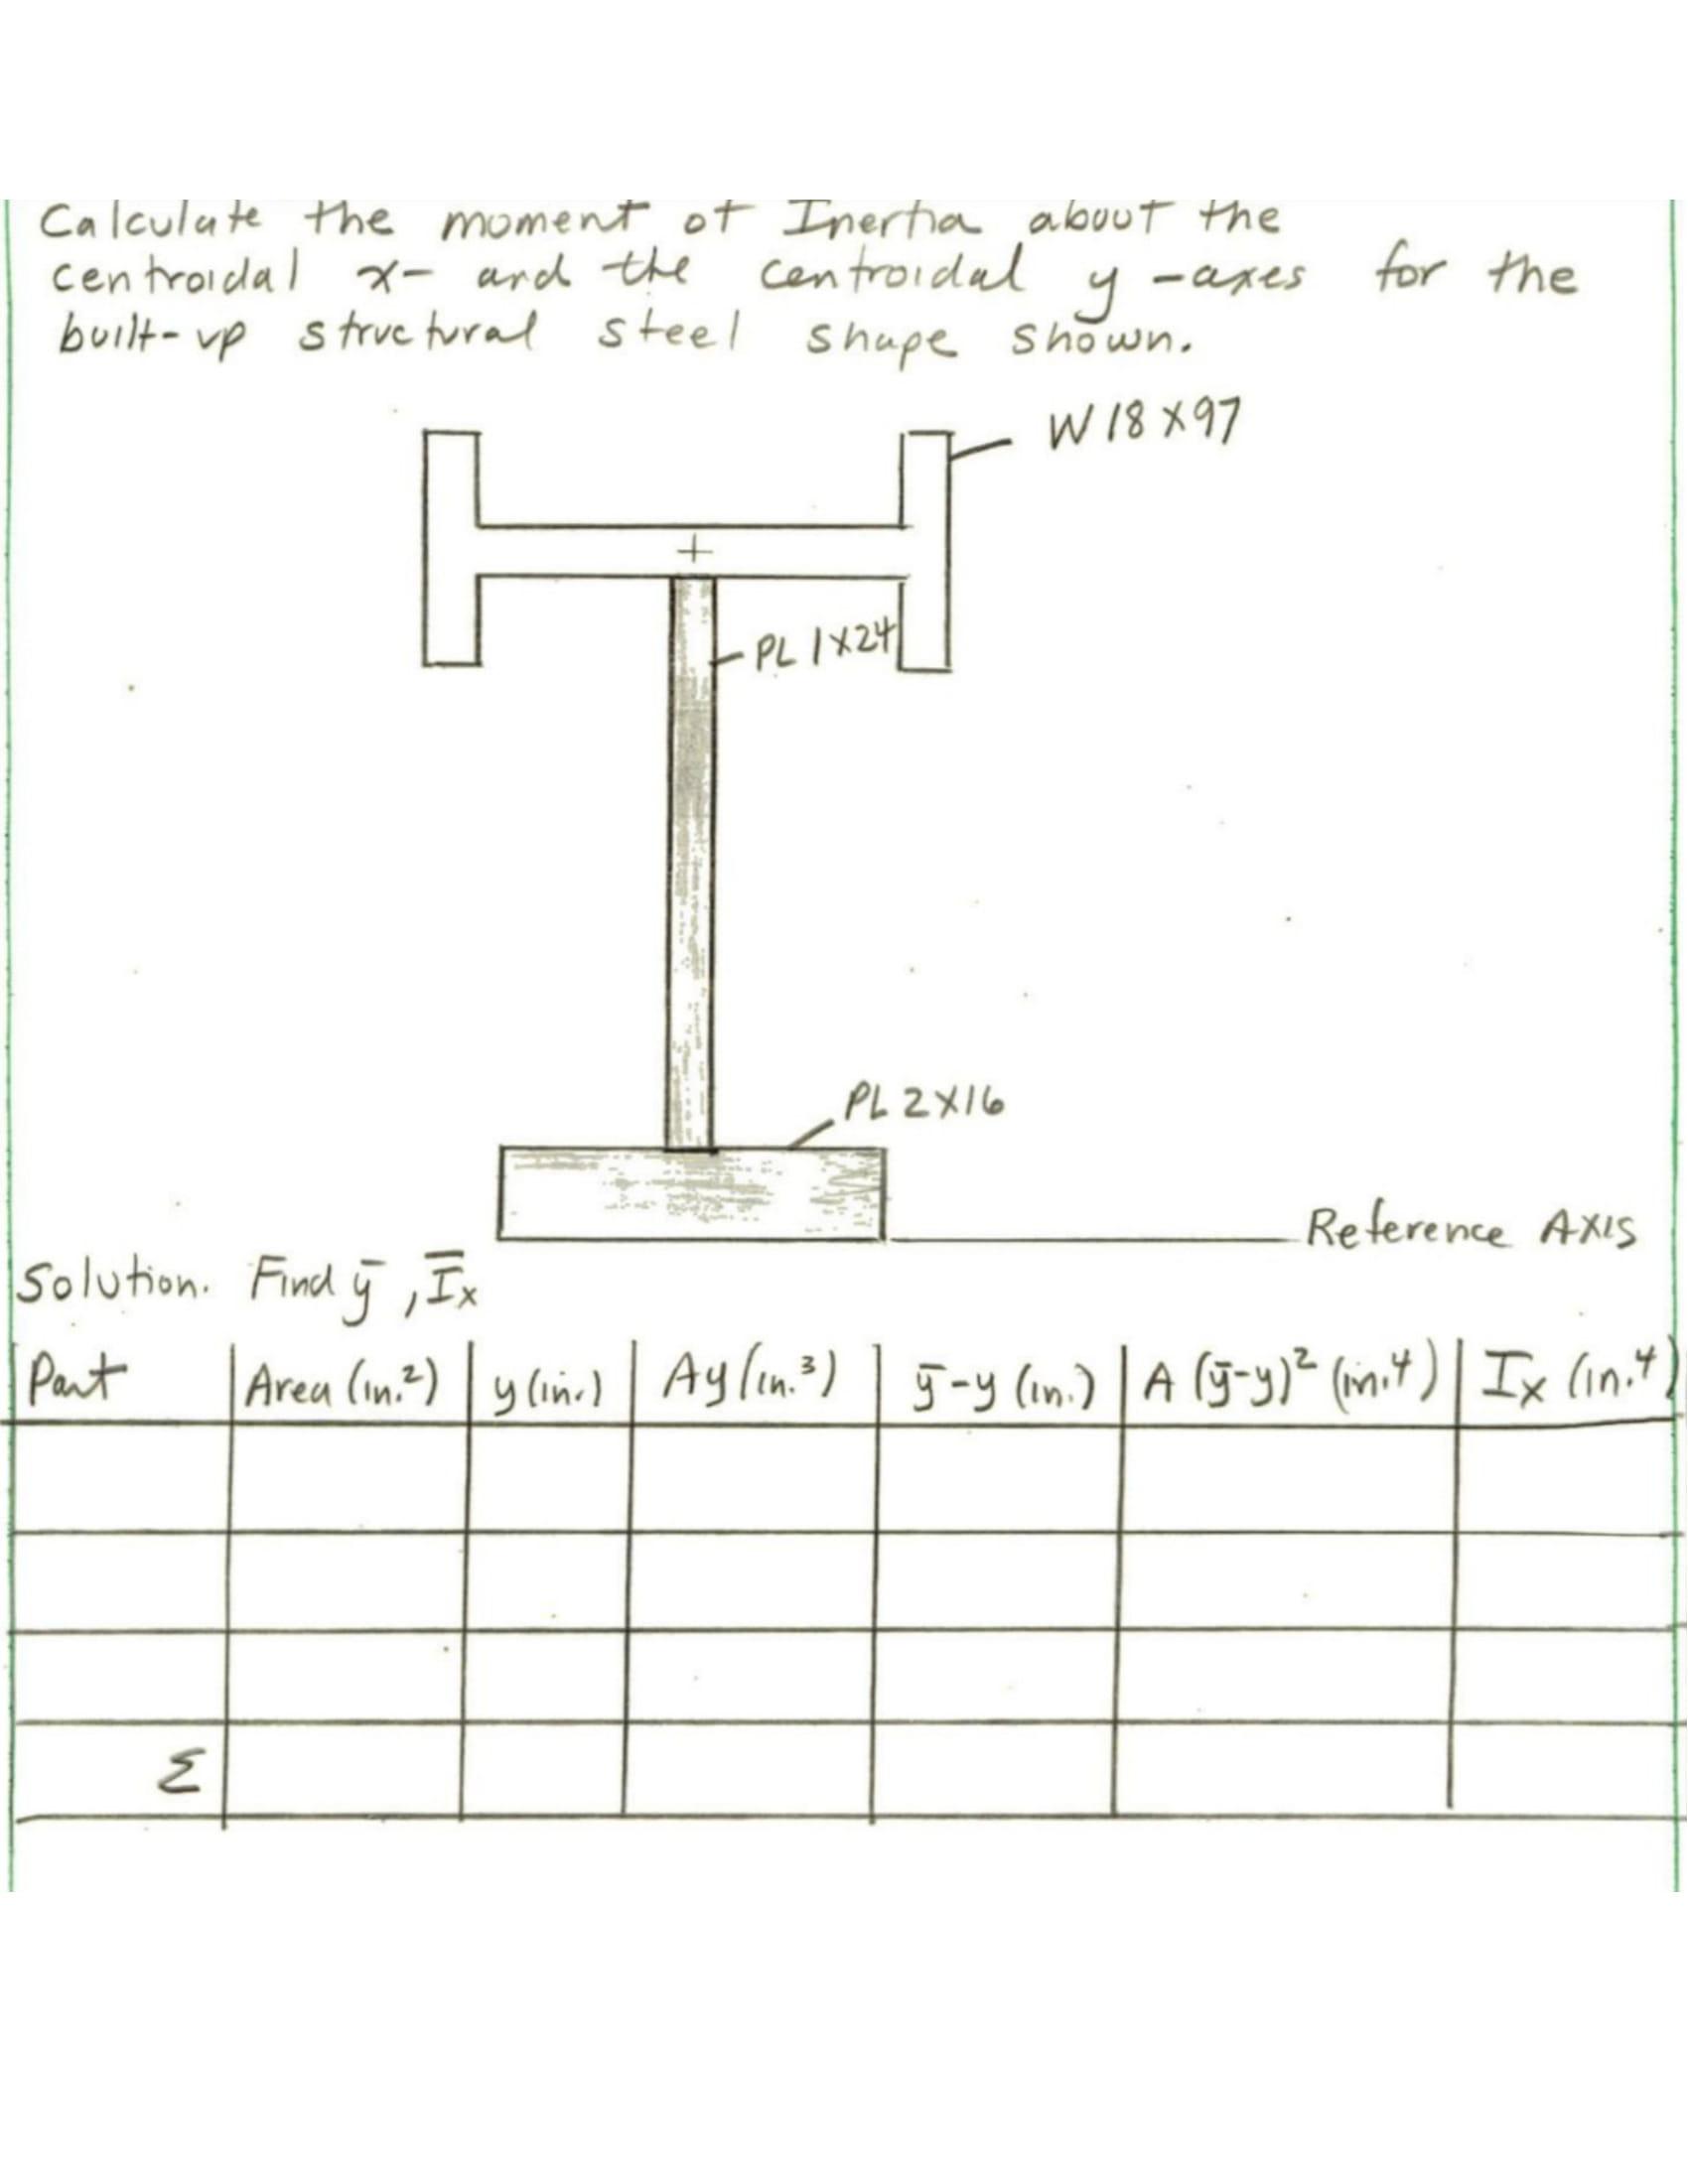 Calculate the moment of Inertia about the
centroidal x- and the centroidal y -axes for the
built-up structural steel shape shown.
W18X97
PL 1X24
PL 2X16
Reference AXIS
Solution. Find ȳ, Īx
Part Area (in.²) y (in.) Ay (in.³) ȳ-y (in.) A (ȳ-y)² (in.⁴) Ix (in.⁴)
Σ